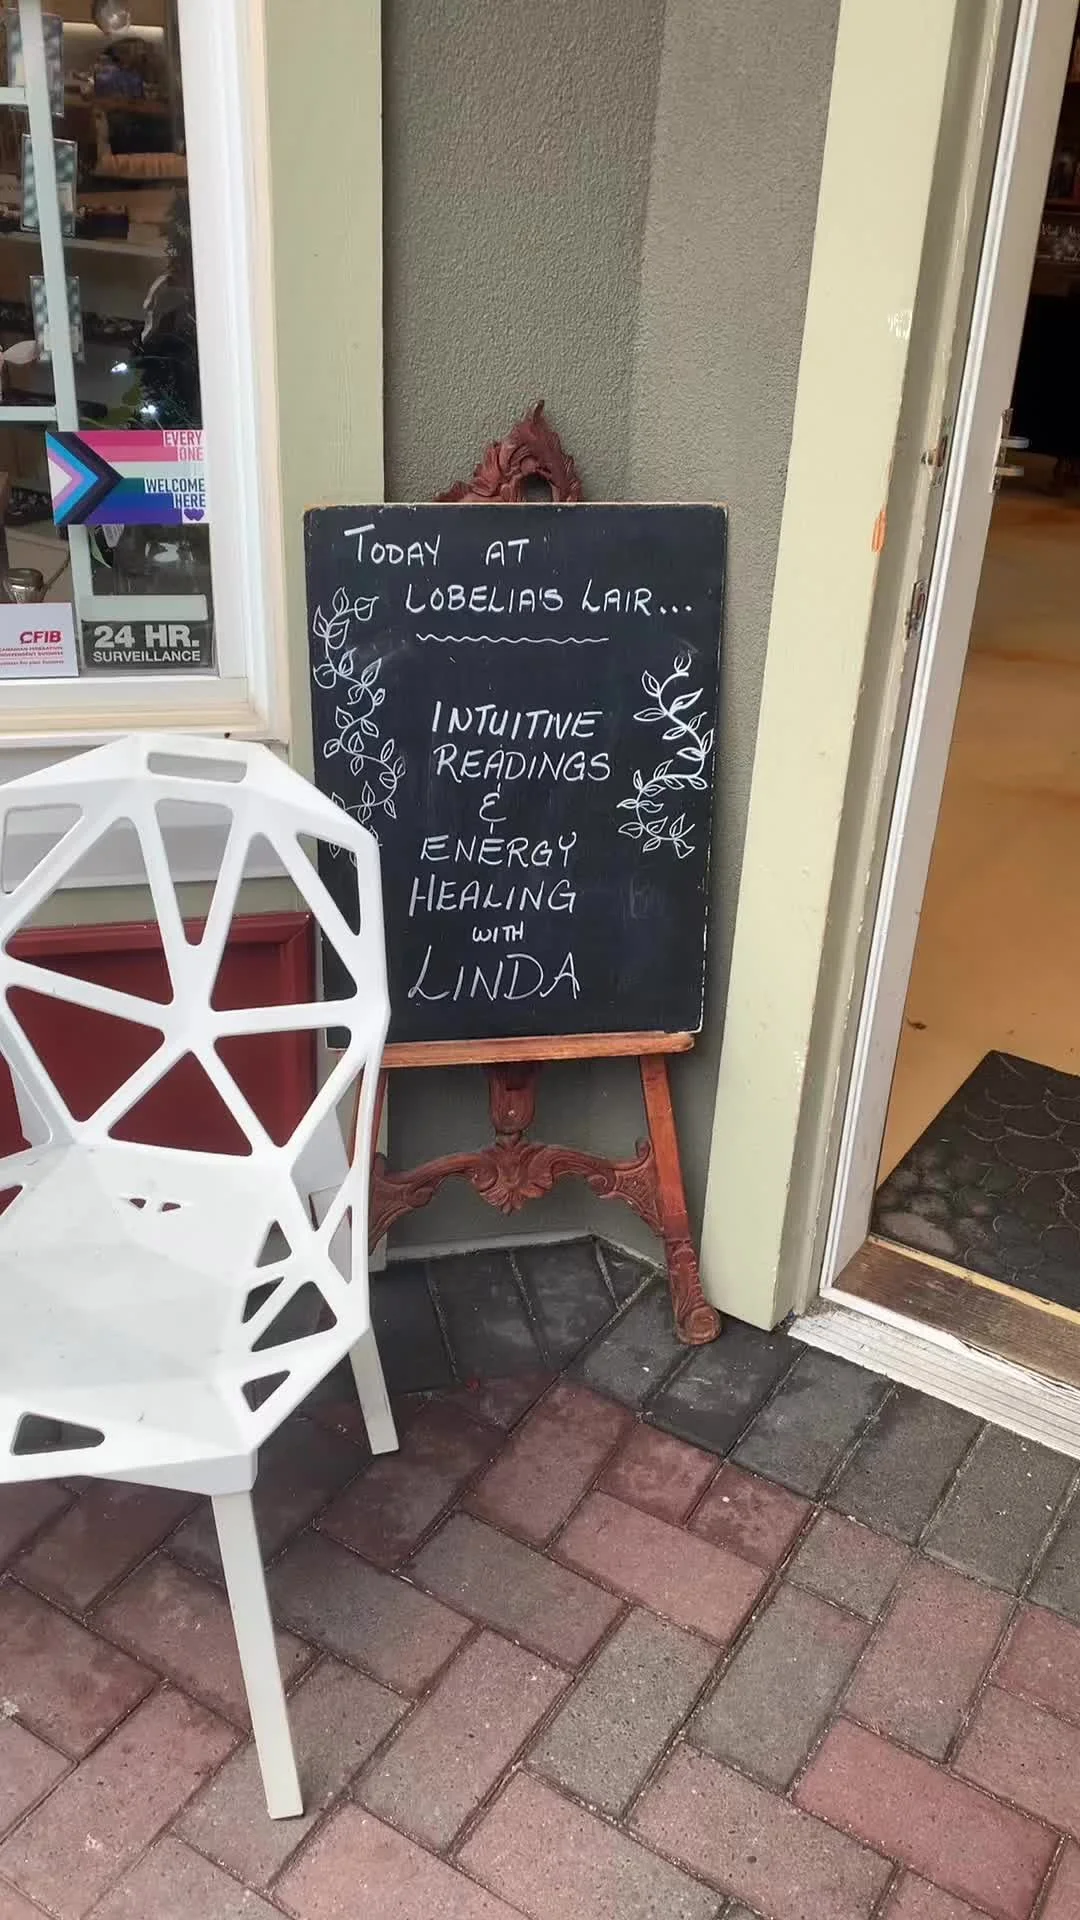 EVERY
ONE
WELCOME
HERE
CFIB
24 HR.
SURVEILLANCE
TODAY AT
LOBELIA'S LAIR...
INTUITIVE
READINGS
&
ENERGY
HEALING
WITH
LINDA